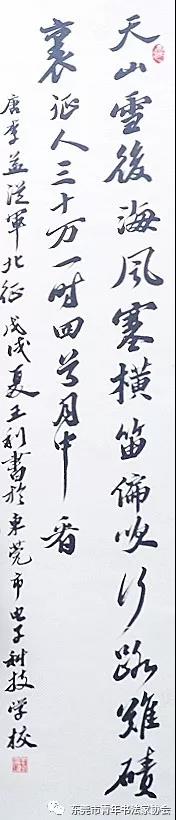 天山雪後海風寒橫笛偏吹行路難磧
裏征人三十万一时回首月中看
唐李益從軍北征 戊戌夏王利書於東莞市电子科技学校
东莞市青年书法家协会